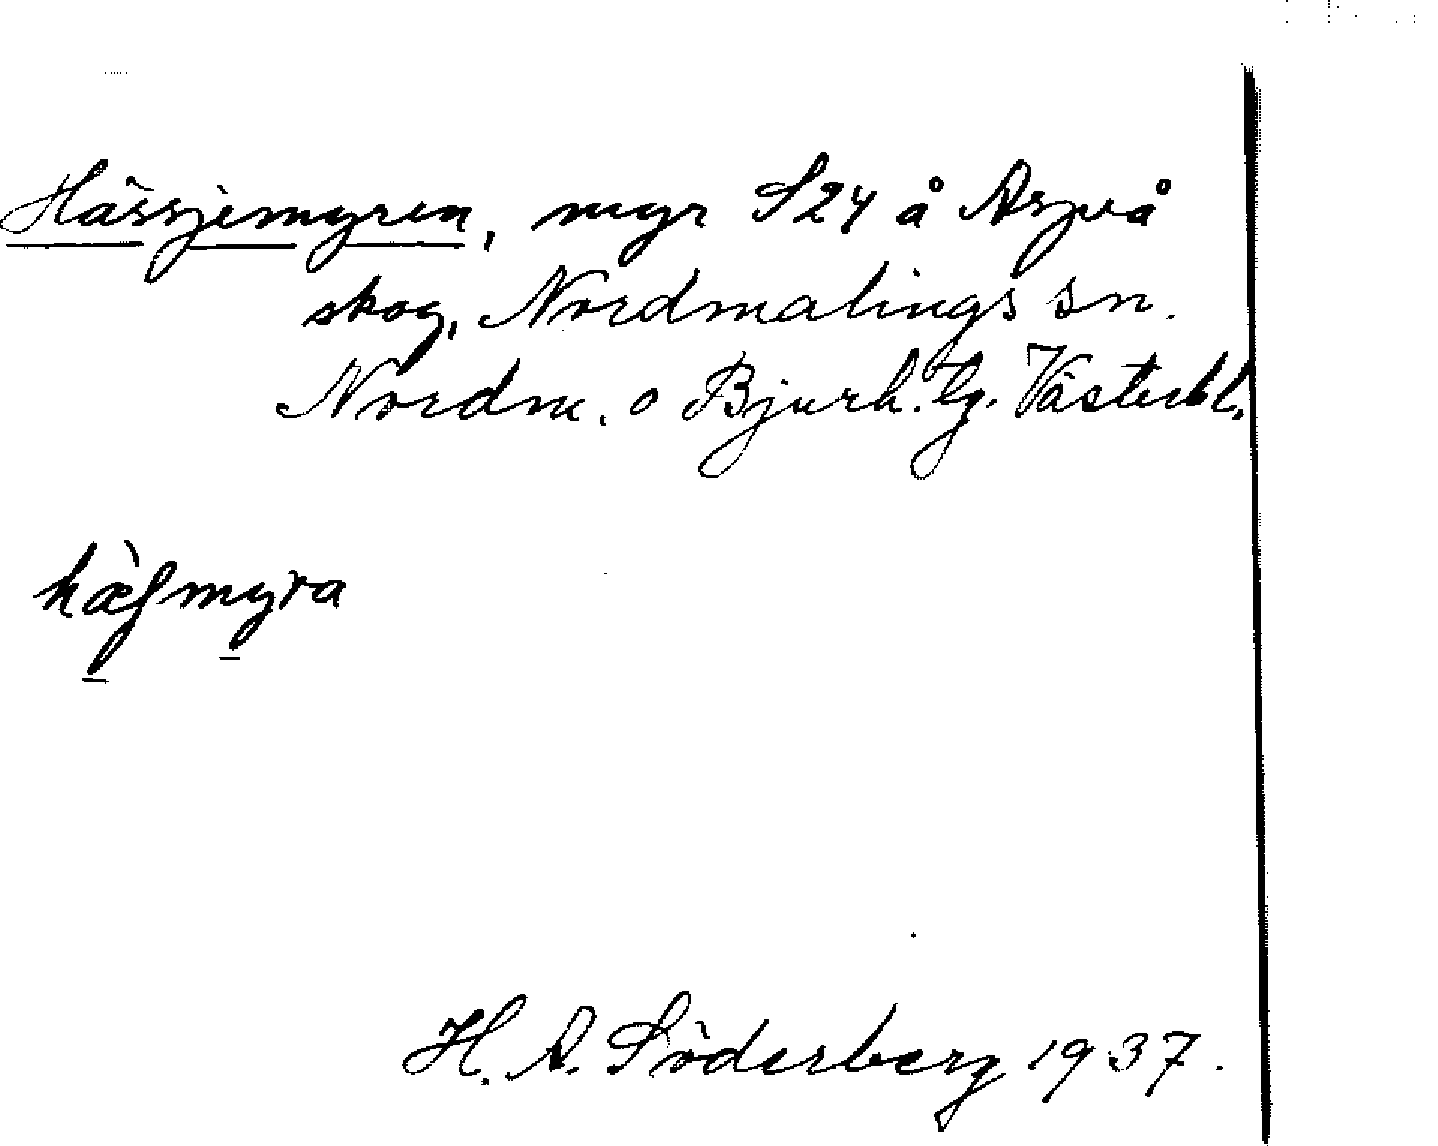 Hässjemyren, myr S24 å Aspeå
skog, Nordmalings sn.
Nordm. o Bjurh. tg. Västerbl.
hæ̀ʃmyra
H. A. Söderberg 1937.